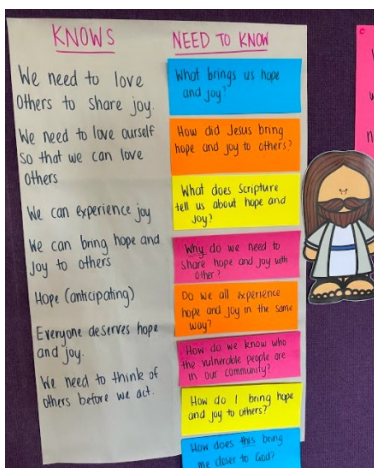 KNOWS
We need to love
Others to share joy.
We need to love ourself
so that we can love
others
We can experience joy
We can bring hope and
Joy to others
Hope (anticipating)
Everyone deserves hope
and joy.
We need to think of
others before we act.
NEED TO KNOW
What brings us hope
and joy?
How did Jesus bring
hope and joy to others?
What does Scripture
tell us about hope and
Joy?
Why do we need to
share hope and joy with
other?
Do we all experience
hope and joy in the same
way?
How do we know who
the vulnerable people are
in our community?
How do I bring hope
and joy to others?
How does this bring
me closer to God?